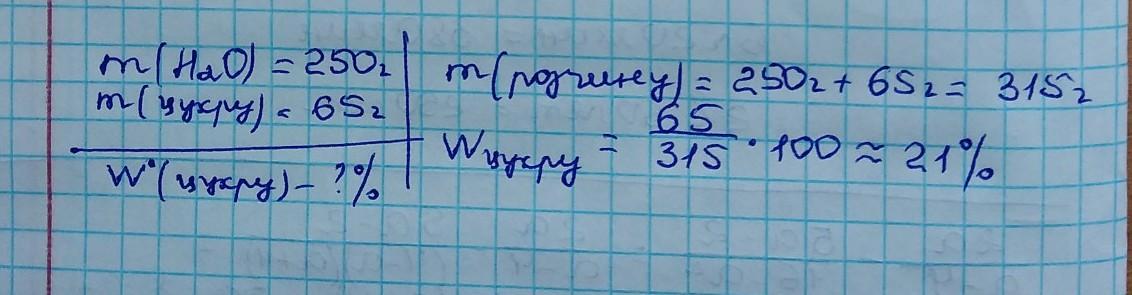 m(H2O) = 250г
m(цукру) = 65г
W(цукру) - ?%
m(розчину) = 250г + 65г = 315г
Wцукру = 65/315 · 100 ≈ 21%